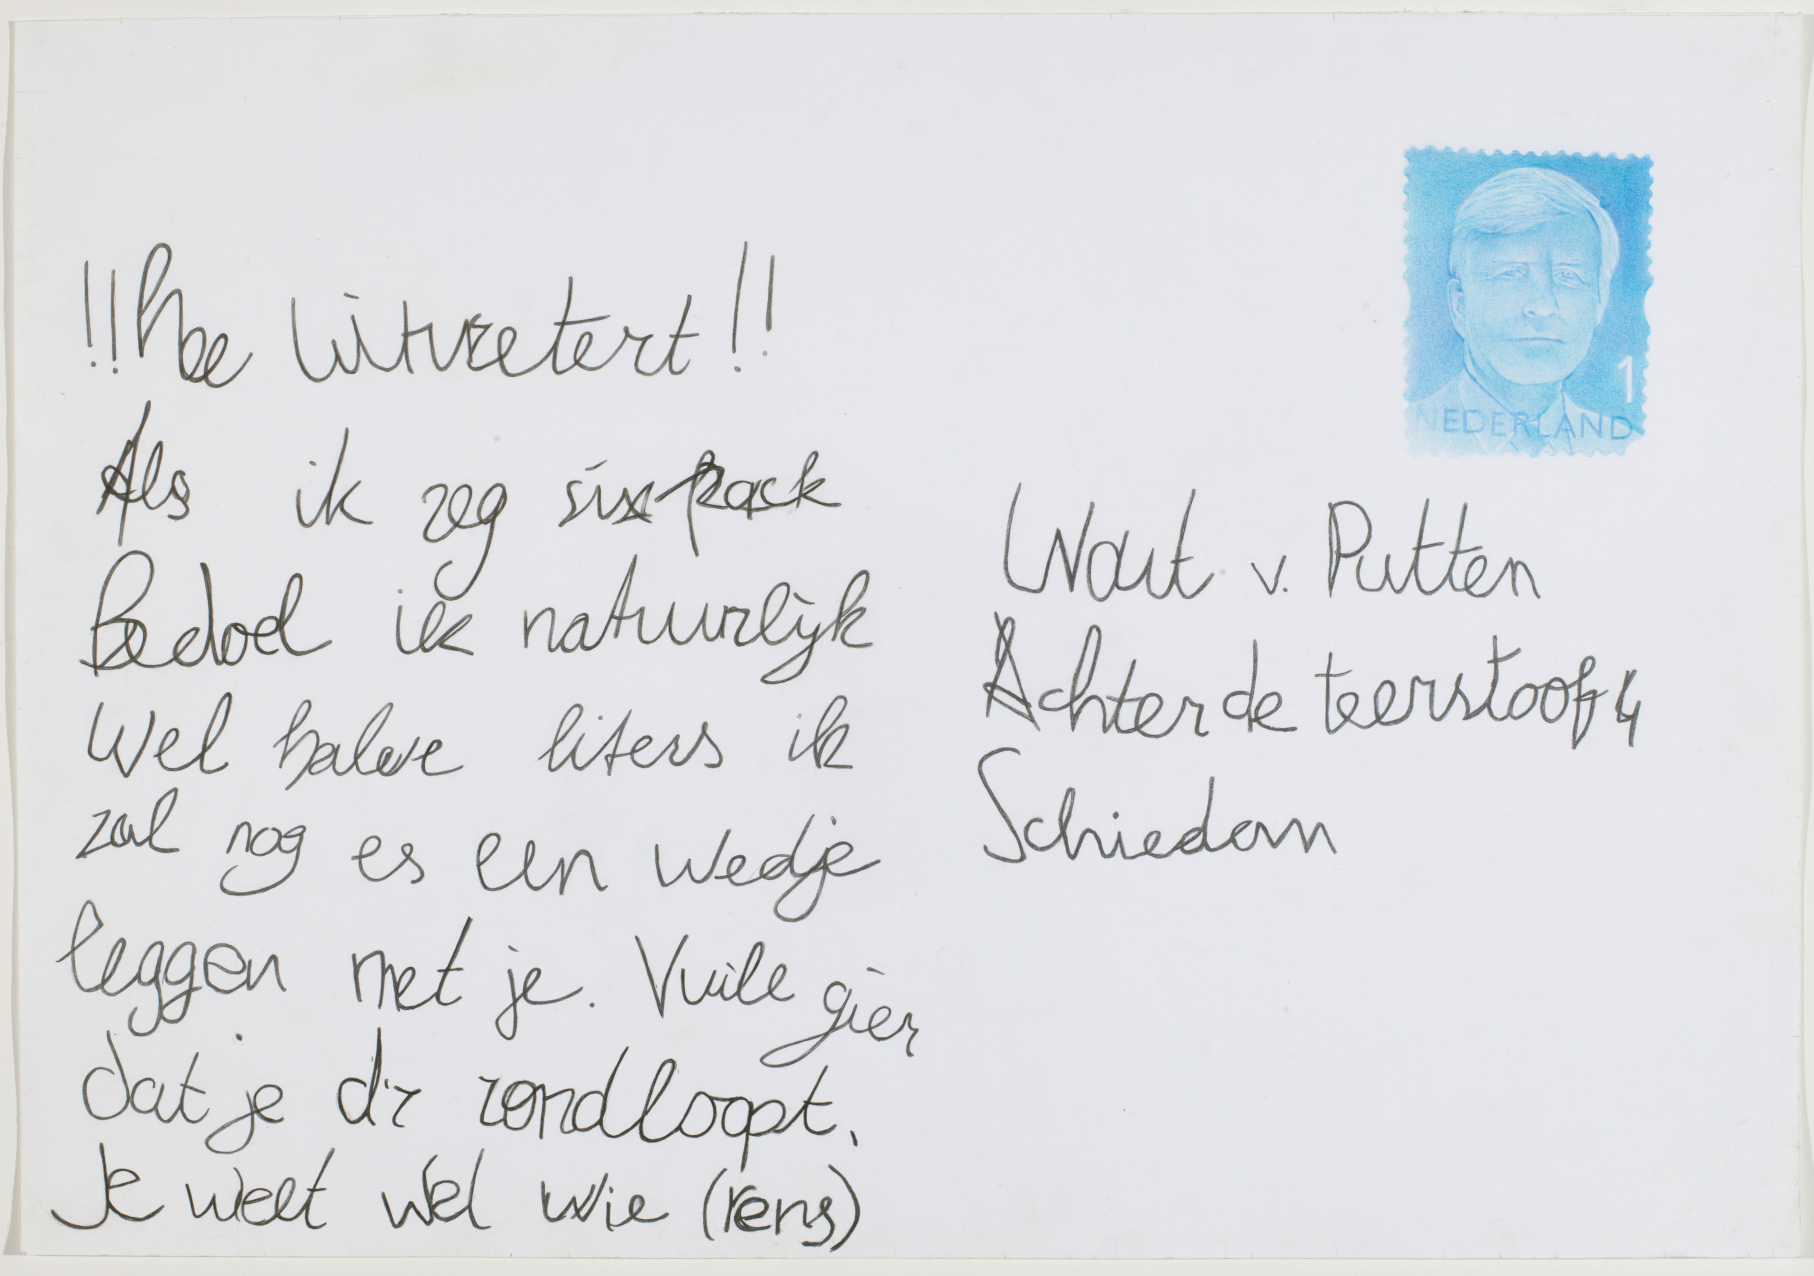 !!hoe uitvretert!!
Als ik zeg sixpack
Bedoel ik natuurlijk
Wel halve liters ik
zal nog es een wedje
leggen met je. Vuile gier
dat je d'r rondloopt.
Je weet wel wie (rens)
1
NEDERLAND
Wout v. Putten
Achter de teerstoof 4
Schiedam